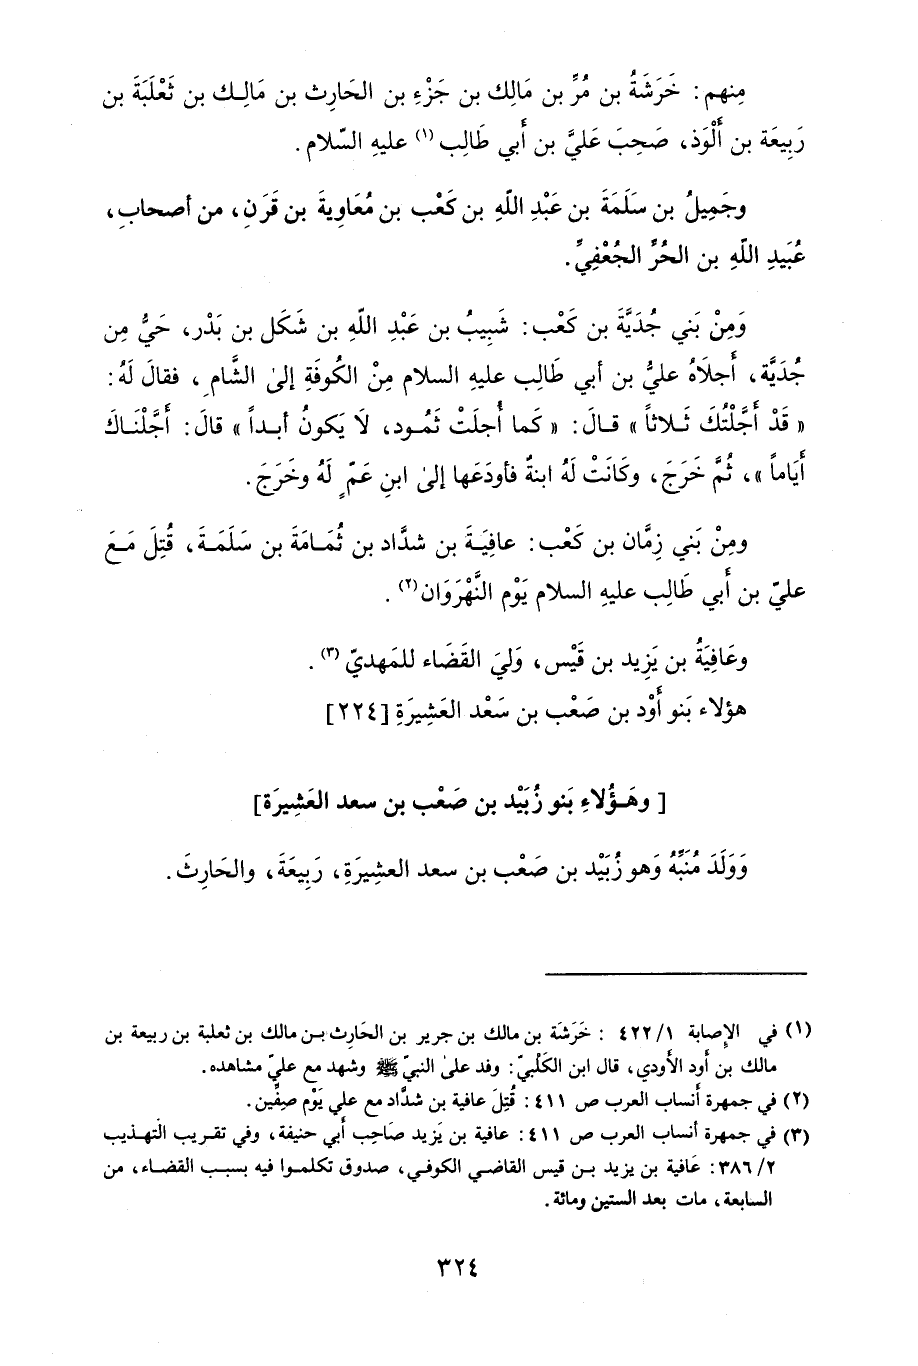 مِنهم: خَرَشَةُ بن مُرِّ بن مَالِك بن جَزْءِ بن الحَارِث بن مَالِـك بن ثَعْلَبَة بن
رَبِيعَة بن أَلْوَذ، صَحِبَ عَليَّ بن أَبي طَالِب (١) عليهِ السَّلام.
وجَمِيلُ بن سَلَمَةَ بن عَبْدِ اللّهِ بن كَعْب بن مُعَاوِيةَ بن قَرَنِ، من أصحابِ،
عُبَيدِ اللّهِ بن الحُرِّ الجُعْفِيِّ.
وَمِنْ بَني جُدَيَّةَ بن كَعْب: شَبِيبُ بن عَبْدِ اللّهِ بن شَكَل بن بَدْر، حَيٌّ مِن
جُدَيَّة، أَجلَاهُ عليُّ بن أبي طَالِب عليهِ السلام مِنْ الكُوفَةِ إلىٰ الشَّامِ، فقالَ لَهُ:
« قَدْ أَجَّلْتُكَ ثَـلاثاً » قـالَ: « كَما أُجلَتْ ثَمُـود، لَا يَكونُ أبـداً » قالَ: أَجَّلْنَـاكَ
أَيَاماً »، ثُمَّ خَرَجَ، وكَانَتْ لَهُ ابنةٌ فأودَعَها إلىٰ ابنِ عَمٍّ لَهُ وخَرَجَ.
ومِنْ بَني زِمَّان بن كَعْب: عافِيَـةَ بن شدَّاد بن ثُمَـامَةَ بن سَلَمَـةَ، قُتِلَ مَـعَ
عليّ بن أَبي طَالِب عليهِ السلام يَوْم النَّهْرَوَان(٢).
وعَافِيَةُ بن يَزِيد بن قَيْس، وَليَ القَضَاء للمَهديّ (٣).
هؤلاء بَنو أَوْد بن صَعْب بن سَعْد العَشِيرَةِ [٢٢٤]
[ وهَـؤُلاءِ بَنو زُبَيْد بن صَعْب بن سعد العَشِيرَة]
وَوَلَدَ مُنَبِّهُ وَهو زُبَيْد بن صَعْب بن سعد العشِيرَةِ، رَبِيعَةَ، والحَارِثَ.
(١) في الإصابة ٤٢٢/١ : خَرَشَة بن مالك بن جرير بن الحَارِث بـن مالك بن ثعلبة بن ربيعة بن
مالك بن أود الأودي، قال ابن الكَلْبيّ: وفد علىٰ النبيّ ﷺ وشهد مع عليّ مشاهده.
(٢) في جمهرة أَنساب العرب ص ٤١١: قُتِلَ عافية بن شدَّاد مع علي يَوْم صِفِّين.
(٣) في جمهرة أنساب العرب ص ٤١١: عافية بن يَزيد صَاحِب أَبي حنيفة، وفي تقـريب التَّهـذيب
٣٨٦/٢: عَافية بن يزيد بـن قيس القاضـي الكوفـي، صدوق تكلمـوا فيه بسبـب القضـاء، من
السابعة، مات بعد الستين ومائة.
٣٢٤